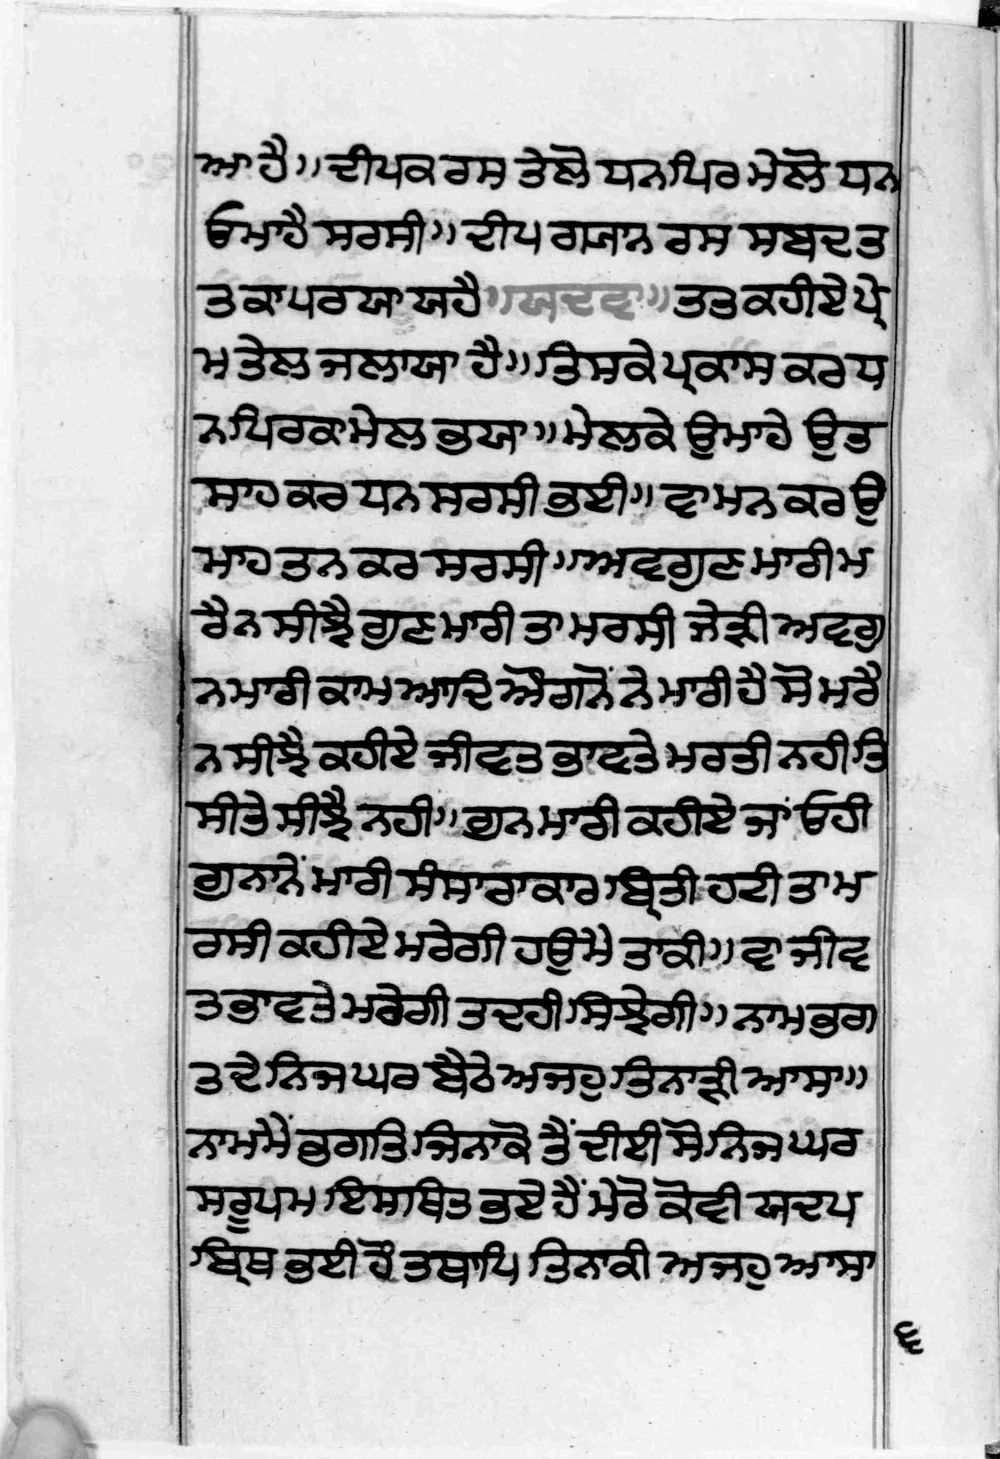 ਆ ਹੈ॥ ਦੀਪਕ ਰਸ ਤੇਲੋ ਧਨ ਪਿਰ ਮੇਲੋ ਧਨ
ਓਮਾਹੈ ਸਰਸੀ॥ ਦੀਪ ਗਯਾਨ ਰਸ ਸਬਦ ਤ
ਤ ਕਾ ਪਰਯਾਯ ਹੈ॥ ਯਦਵਾ॥ ਤਤ ਕਹੀਏ ਪ੍ਰੇ
ਮ ਤੇਲ ਜਲਾਯਾ ਹੈ॥ ਤਿਸਕੇ ਪ੍ਰਕਾਸ ਕਰ ਧ
ਨ ਪਿਰ ਕਾ ਮੇਲ ਭਯਾ॥ ਮੇਲ ਕੇ ਉਮਾਹੇ ਉਤ
ਸਾਹ ਕਰ ਧਨ ਸਰਸੀ ਭਈ॥ ਵਾ ਮਨ ਕਰ ਉ
ਮਾਹ ਤਨ ਕਰ ਸਰਸੀ॥ ਅਵਗੁਣ ਮਾਰੀ ਮ
ਰੈ ਨ ਸੀਝੈ ਗੁਣ ਮਾਰੀ ਤਾ ਮਰਸੀ ਜੇੜੀ ਅਵਗੁ
ਨ ਮਾਰੀ ਕਾਮ ਆਦਿ ਔਗਨੋਂ ਨੇ ਮਾਰੀ ਹੈ ਸੋ ਮਰੈ
ਨ ਸੀਝੈ ਕਹੀਏ ਜੀਵਤ ਭਾਵ ਤੇ ਮਰਤੀ ਨਹੀ ਤਿ
ਸੀ ਤੇ ਸੀਝੈ ਨਹੀ॥ ਗੁਨ ਮਾਰੀ ਕਹੀਏ ਜਾਂ ਓਹੀ
ਗੁਨਾ ਨੇਂ ਮਾਰੀ ਸੰਸਾਰਾਕਾਰ ਬ੍ਰਿਤੀ ਹਟੀ ਤਾ ਮ
ਰਸੀ ਕਹੀਏ ਮਰੇਗੀ ਹਉਮੈ ਤਾਕੀ॥ ਵਾ ਜੀਵ
ਤ ਭਾਵ ਤੇ ਮਰੇਗੀ ਤਦ ਹੀ ਸਿਝੇਗੀ॥ ਨਾਮ ਭਗ
ਤ ਦੇ ਨਿਜ ਘਰ ਬੈਠੇ ਅਜਹੁ ਤਿਨਾੜੀ ਆਸਾ॥
ਨਾਮ ਮੈਂ ਭੁਗਤਿ ਜਿਨਾ ਕੋ ਤੈਂ ਦੀਈ ਸੋ ਨਿਜ ਘਰ
ਸਰੂਪ ਮ ਇਸਥਿਤ ਭਏ ਹੈਂ ਮੇਰੋ ਕੋਵੀ ਯਦਪ
ਬ੍ਰਿਧ ਭਈ ਹੌ ਤਥਾਪਿ ਤਿਨਾ ਕੀ ਅਜਹੁ ਆਸਾ
੬